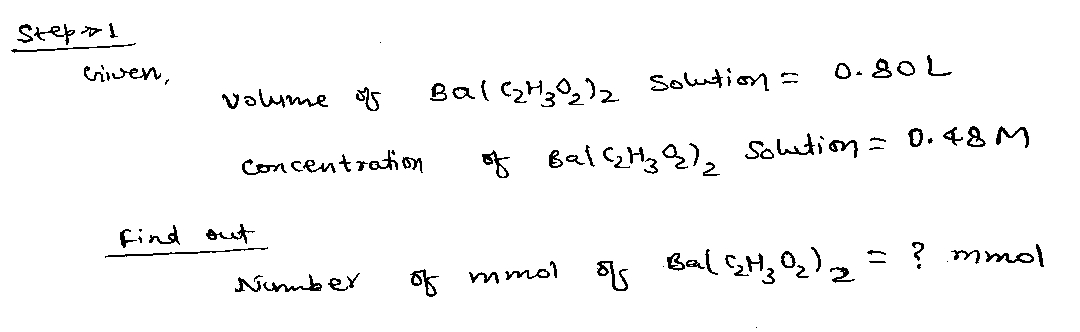 Step ⇒ 1
Given,
Volume of Ba(C₂H₃O₂)₂ Solution = 0.80 L
Concentration of Ba(C₂H₃O₂)₂ Solution = 0.48 M
Find out
Number of mmol of Ba(C₂H₃O₂)₂ = ? mmol